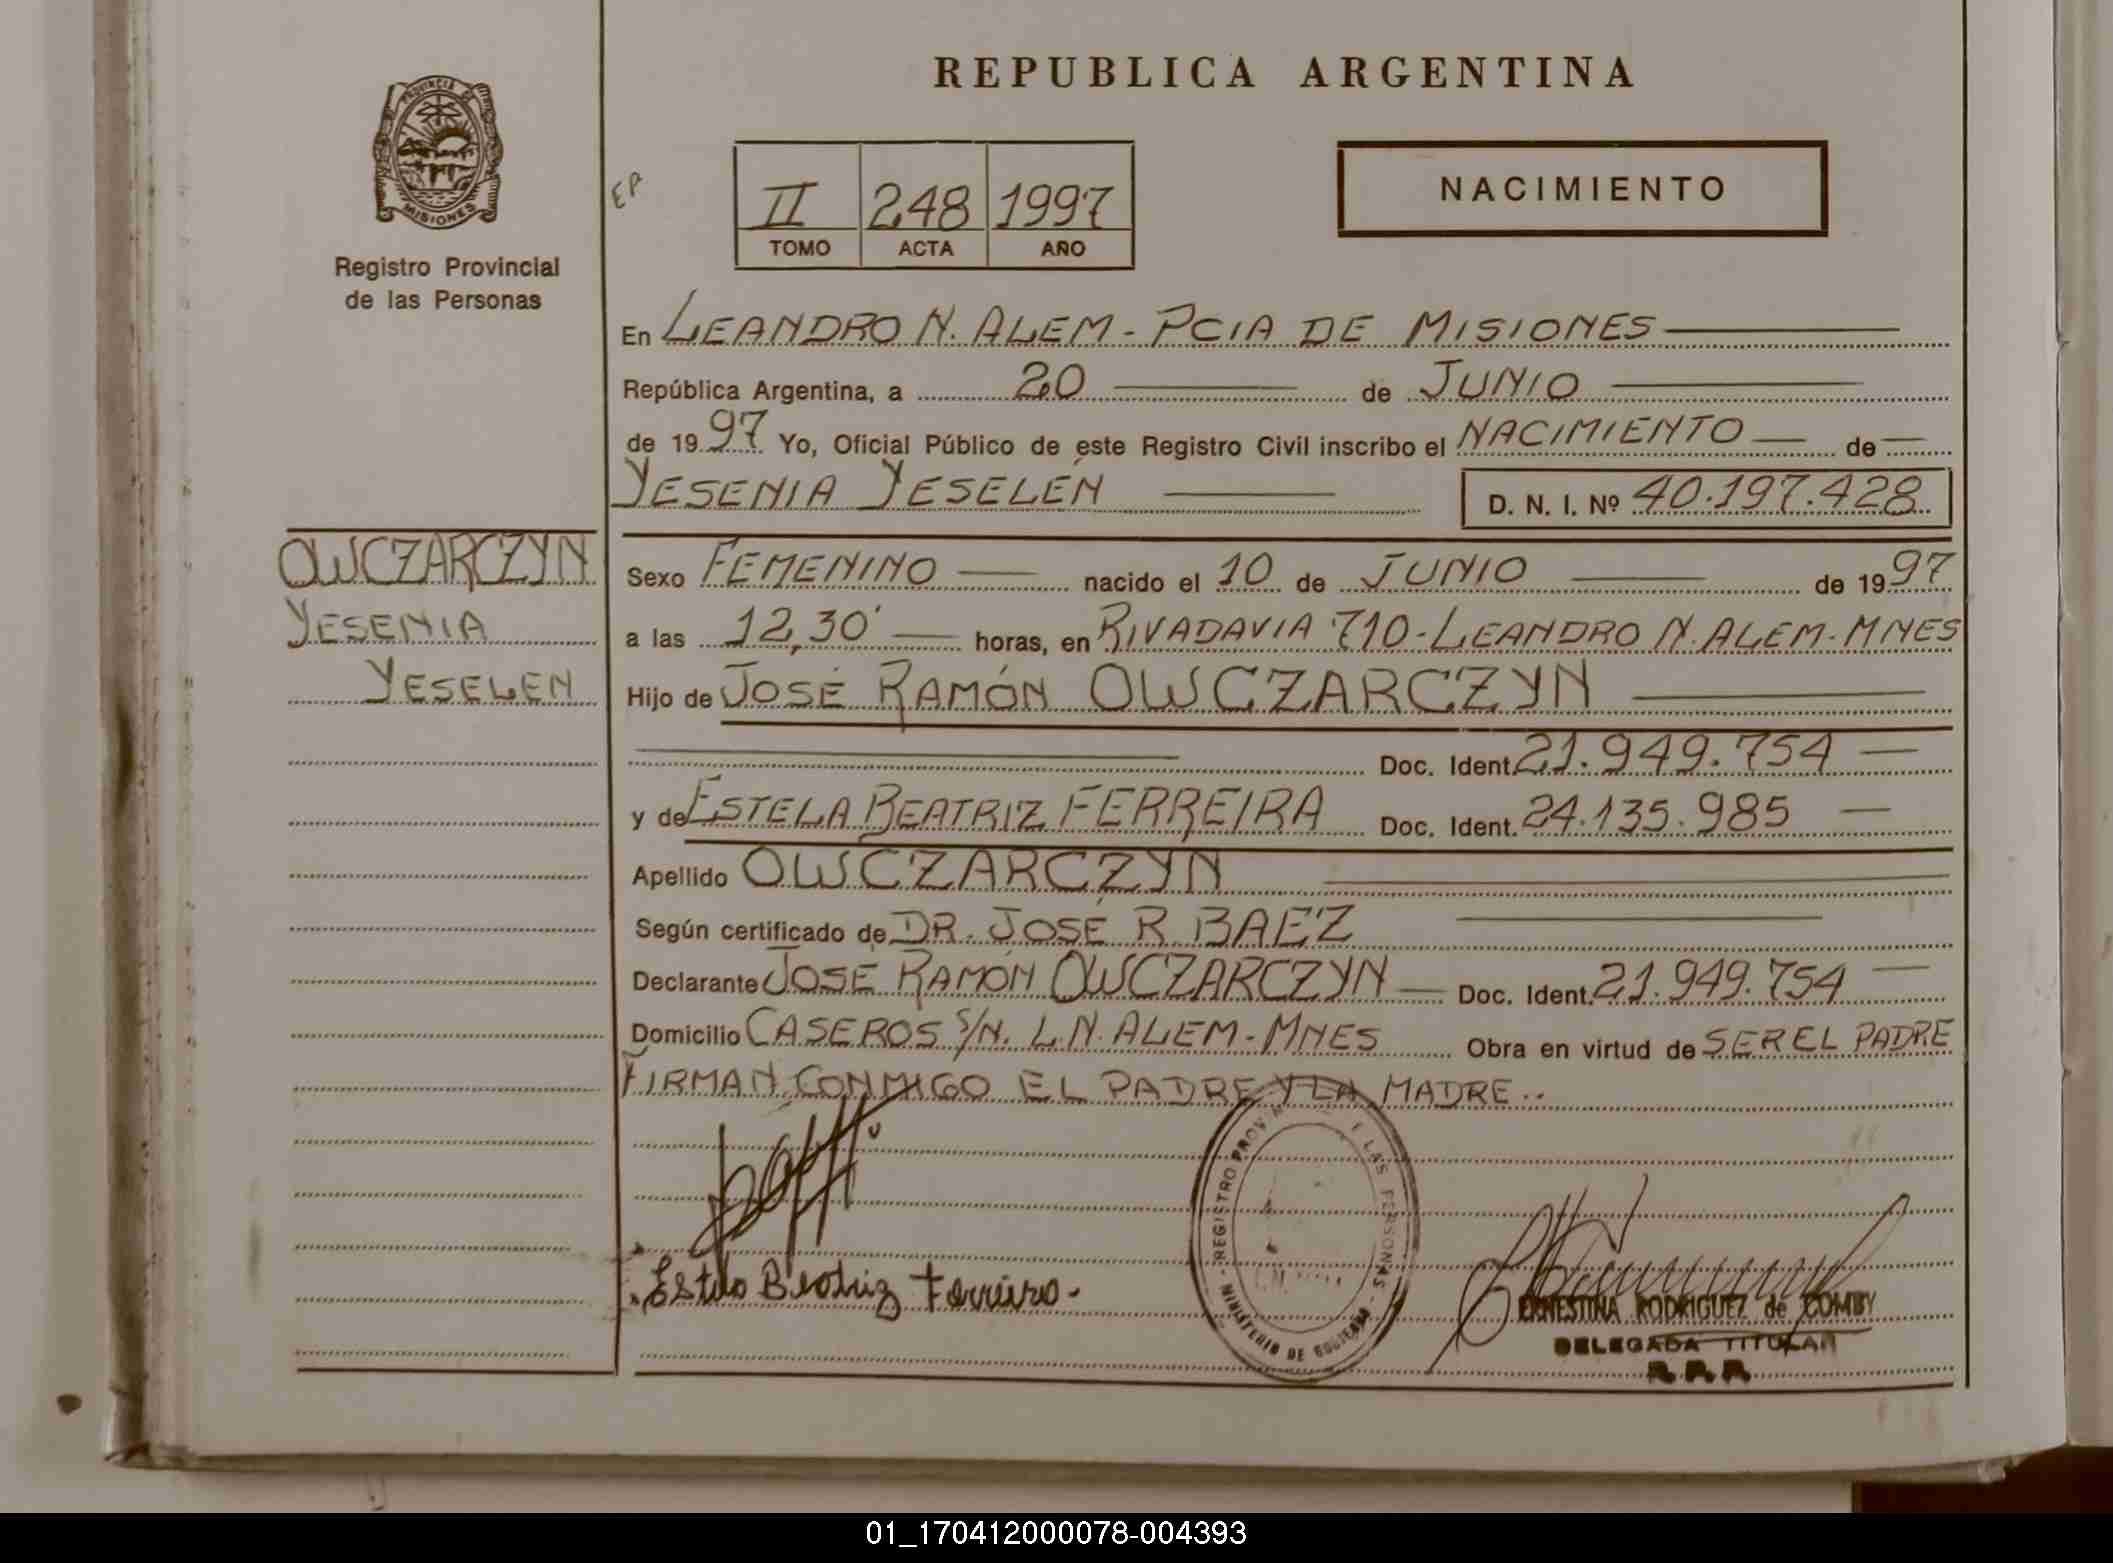 REPUBLICA ARGENTINA
PROVINCIA DE
MISIONES
Registro Provincial
de las Personas
EP
II 248 1997
TOMO ACTA AÑO
NACIMIENTO
En LEANDRO N. ALEM - PCIA DE MISIONES
República Argentina, a 20 de JUNIO
de 1997 Yo, Oficial Público de este Registro Civil inscribo el NACIMIENTO de
YESENIA YESELÉN D. N. I. Nº 40.197.428
OWCZARCZYN
YESENIA
YESELEN
Sexo FEMENINO nacido el 10 de JUNIO de 1997
a las 12,30' horas, en RIVADAVIA 710 - LEANDRO N. ALEM - MNES
Hijo de JOSÉ RAMÓN OWCZARCZYN
Doc. Ident. 21.949.754
y de ESTELA BEATRIZ FERREIRA Doc. Ident. 24.135.985
Apellido OWCZARCZYN
Según certificado de DR. JOSÉ R BAEZ
Declarante JOSE RAMÓN OWCZARCZYN Doc. Ident. 21.949.754
Domicilio CASEROS S/N. L.N. ALEM - MNES Obra en virtud de SER EL PADRE
FIRMAN CONMIGO EL PADRE Y LA MADRE..
Estela Beatriz Ferreira -
REGISTRO PROV LAS PERSONAS
MINISTERIO DE GOBIERNO
ERNESTINA RODRIGUEZ de COMBY
DELEGADA TITULAR
R.P.P.
01_170412000078-004393